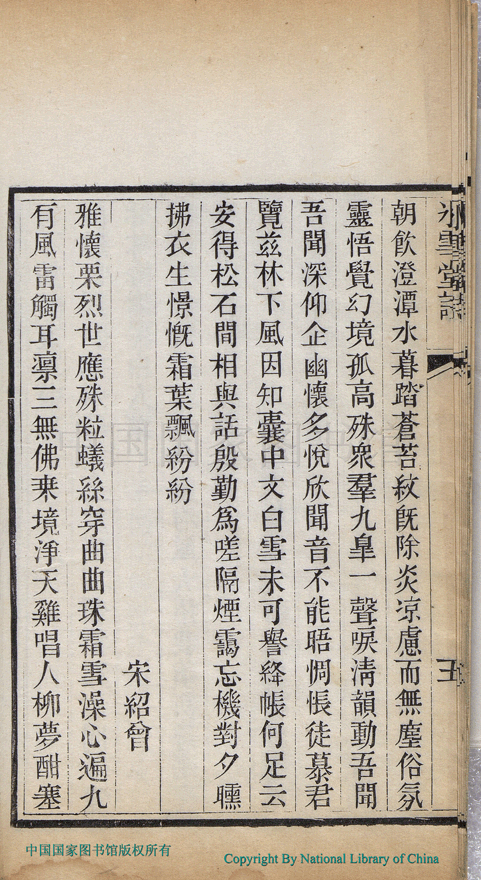 冰雪堂詩
五
朝飲澄潭水暮踏蒼苔紋旣除炎凉慮而無塵俗氛
靈悟覺幻境孤高殊衆羣九皐一聲唳淸韻動吾聞
吾聞深仰企幽懷多悅欣聞音不能晤惆悵徒慕君
覽兹林下風因知囊中文白雪未可譽絳帳何足云
安得松石間相與話殷勤爲嗟隔煙靄忘機對夕曛
拂衣生憬慨霜葉飄紛紛
宋紹曾
雅懷栗烈世應殊粒蟻絲穿曲曲珠霜雪澡心遍九
有風雷觸耳禀三無佛来境淨天雞唱人柳夢酣塞
中国国家图书馆版权所有
Copyright By National Library of China